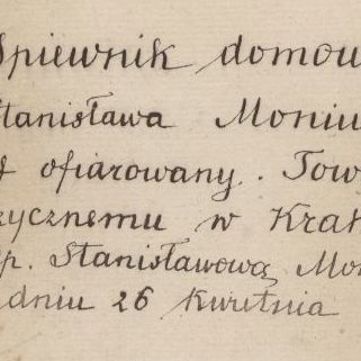 Śpiewnik domow
Stanisława Moniu
ofiarowany. Tow
zycznemu w Krak
p. Stanisławową Mon
dniu 26 Kwietnia